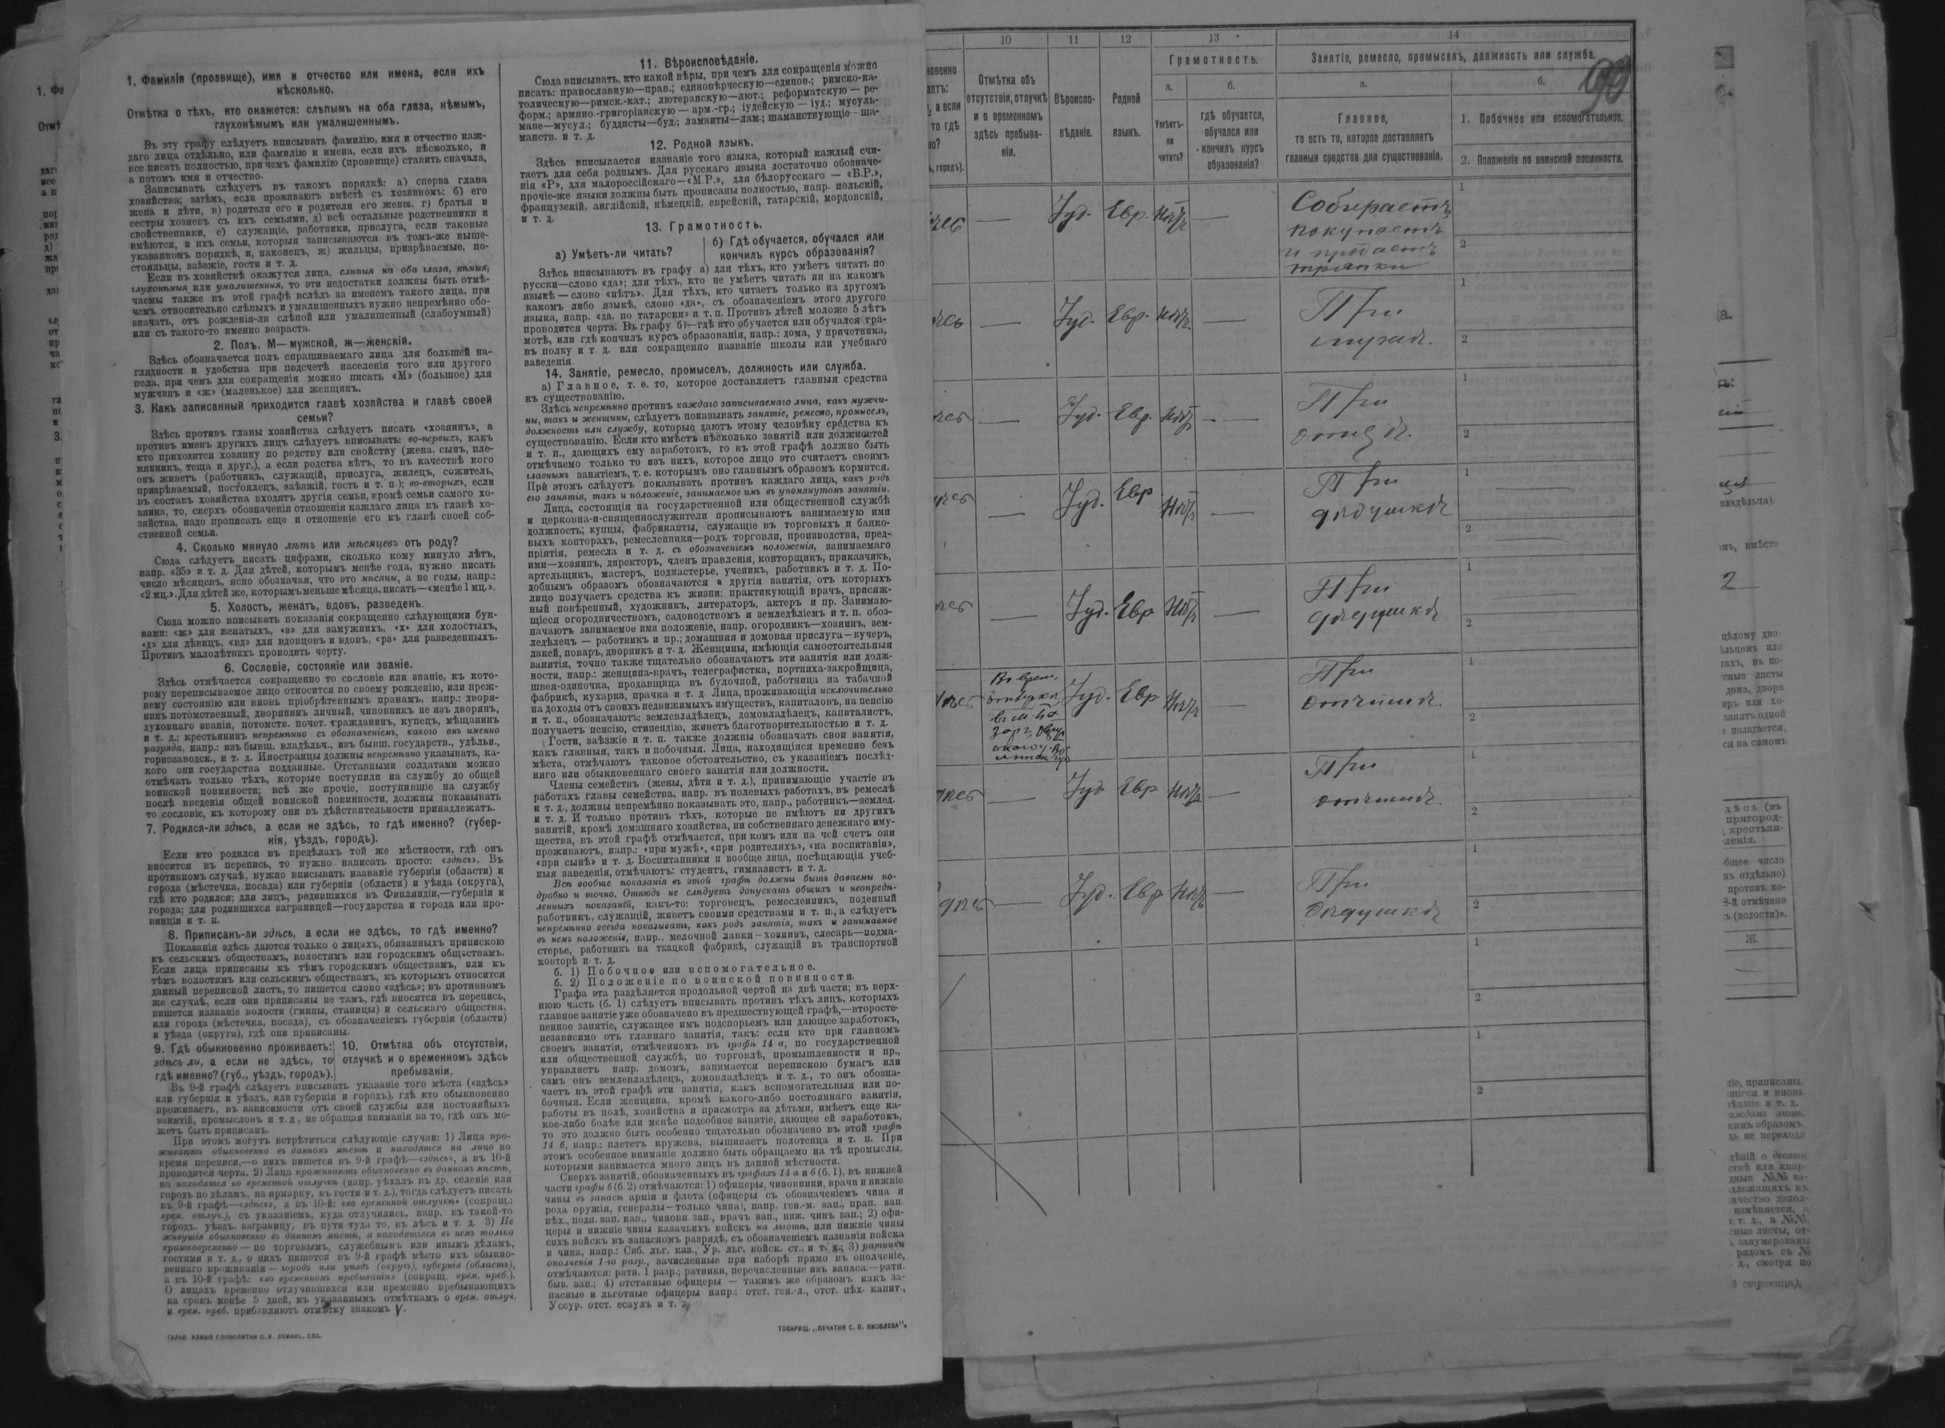 1. Фамилія (прозвище), имя и отчество или имена, если ихъ
нѣсколько.
Отмѣтка о тѣхъ, кто окажется: слѣпымъ на оба глаза, нѣмымъ,
глухонѣмымъ или умалишеннымъ.
Въ эту графу слѣдуетъ вписывать фамилію, имя и отчество каж-
даго лица отдѣльно, или фамилію и имена, если ихъ нѣсколько, и
все писать полностью, при чемъ фамилію (прозвище) ставить сначала,
а потомъ имя и отчество.
Записывать слѣдуетъ въ такомъ порядкѣ: а) сперва глава
хозяйства; затѣмъ, если проживаютъ вмѣстѣ съ хозяиномъ: б) его
жена и дѣти, в) родители его и родители его жены, г) братья и
сестры хозяевъ съ ихъ семьями, д) всѣ остальные родственники и
свойственники, е) служащіе, работники, прислуга, если таковые
имѣются, и ихъ семьи, которыя записываются въ томъ-же выше-
указанномъ порядкѣ, и, наконецъ, ж) жильцы, призрѣваемые, по-
стояльцы, заѣзжіе, гости и т. д.
Если въ хозяйствѣ окажутся лица, слѣпыя на оба глаза, нѣмыя,
глухонѣмыя или умалишенныя, то эти недостатки должны быть отмѣ-
чаемы также въ этой графѣ вслѣдъ за именемъ такого лица, при
чемъ относительно слѣпыхъ и умалишенныхъ нужно непремѣнно обо-
значать, отъ рожденія-ли слѣпой или умалишенный (слабоумный)
или съ такого-то именно возраста.
2. Полъ. М—мужской, ж—женскій.
Здѣсь обозначается полъ спрашиваемаго лица для большей на-
глядности и удобства при подсчетѣ населенія того или другого
пола, при чемъ для сокращенія можно писать «М» (большое) для
мужчинъ и «ж» (маленькое) для женщинъ.
3. Какъ записанный приходится главѣ хозяйства и главѣ своей
семьи?
Здѣсь противъ главы хозяйства слѣдуетъ писать «хозяинъ», а
противъ именъ другихъ лицъ слѣдуетъ вписывать: во-первыхъ, какъ
кто приходится хозяину по родству или свойству (жена, сынъ, пле-
мянникъ, теща и друг.), а если родства нѣтъ, то въ качествѣ кого
онъ живетъ (работникъ, служащій, прислуга, жилецъ, сожитель,
призрѣваемый, постоялецъ, заѣзжій, гость и т. п.); во-вторыхъ, если
въ составъ хозяйства входятъ другія семьи, кромѣ семьи самого хо-
зяина, то, сверхъ обозначенія отношенія каждаго лица къ главѣ хо-
зяйства, надо прописать еще и отношеніе его къ главѣ своей соб-
ственной семьи.
4. Сколько минуло лѣтъ или мѣсяцевъ отъ роду?
Сюда слѣдуетъ писать цифрами, сколько кому минуло лѣтъ,
напр. «35» и т. д. Для дѣтей, которымъ менѣе года, нужно писать
число мѣсяцевъ, ясно обозначая, что это мѣсяцы, а не годы, напр.:
«2 мц.». Для дѣтей же, которымъ меньше мѣсяца, писать—«менѣе 1 мц.».
5. Холостъ, женатъ, вдовъ, разведенъ.
Сюда можно вписывать показанія сокращенно слѣдующими бук-
вами: «ж» для женатыхъ, «з» для замужнихъ, «х» для холостыхъ,
«д» для дѣвицъ, «вд» для вдовцовъ и вдовъ, «рз» для разведенныхъ.
Противъ малолѣтнихъ проводить черту.
6. Сословіе, состояніе или званіе.
Здѣсь отмѣчается сокращенно то сословіе или званіе, къ кото-
рому переписываемое лицо относится по своему рожденію, или преж-
нему состоянію или вновь пріобрѣтеннымъ правамъ, напр.: дворя-
нинъ потомственный, дворянинъ личный, чиновникъ не изъ дворянъ,
духовнаго званія, потомств. почет. гражданинъ, купецъ, мѣщанинъ
и т. д.; крестьянинъ непремѣнно съ обозначеніемъ, какого онъ именно
разряда, напр.: изъ бывш. владѣльч., изъ бывш. государств., удѣльн.,
горнозаводск., и т. д. Иностранцы должны непремѣнно указывать, ка-
кого они государства подданные. Отставными солдатами можно
отмѣчать только тѣхъ, которые поступили на службу до общей
воинской повинности; всѣ же прочіе, поступившіе на службу
послѣ введенія общей воинской повинности, должны показывать
то сословіе, къ которому они въ дѣйствительности принадлежатъ.
7. Родился-ли здѣсь, а если не здѣсь, то гдѣ именно? (губер-
нія, уѣздъ, городъ).
Если кто родился въ предѣлахъ той же мѣстности, гдѣ онъ
вносится въ перепись, то нужно написать просто: «здѣсь». Въ
противномъ случаѣ, нужно вписывать названіе губерніи (области) и
города (мѣстечка, посада) или губерніи (области) и уѣзда (округа),
гдѣ кто родился; для лицъ, родившихся въ Финляндіи,—губерніи и
города; для родившихся заграницей—государства и города или про-
винціи и т. п.
8. Приписанъ-ли здѣсь, а если не здѣсь, то гдѣ именно?
Показанія здѣсь даются только о лицахъ, обязанныхъ припискою
къ сельскимъ обществамъ, волостямъ или городскимъ обществамъ.
Если лица приписаны къ тѣмъ городскимъ обществамъ, или къ
тѣмъ волостямъ или сельскимъ обществамъ, къ которымъ относится
данный переписной листъ, то пишется слово «здѣсь»; въ противномъ
же случаѣ, если они приписаны не тамъ, гдѣ вносятся въ перепись,
пишется названіе волости (гмины, станицы) и сельскаго общества,
или города (мѣстечка, посада), съ обозначеніемъ губерніи (области)
и уѣзда (округа), гдѣ они приписаны.
9. Гдѣ обыкновенно проживаетъ:
здѣсь ли, а если не здѣсь, то
гдѣ именно? (губ., уѣздъ, городъ).
10. Отмѣтка объ отсутствіи,
отлучкѣ и о временномъ здѣсь
пребываніи.
Въ 9-й графѣ слѣдуетъ вписывать указаніе того мѣста («здѣсь»
или губернія и уѣздъ, или губернія и городъ), гдѣ кто обыкновенно
проживаетъ, въ зависимости отъ своей службы или постоянныхъ
занятій, промысловъ и т. д., не обращая вниманія на то, гдѣ онъ мо-
жетъ быть приписанъ.
При этомъ могутъ встрѣтиться слѣдующіе случаи: 1) Лица про-
живаютъ обыкновенно въ данномъ мѣстѣ и находятся на лицо во
время переписи,—о нихъ пишется въ 9-й графѣ—«здѣсь», а въ 10-й
проводится черта. 2) Лица проживаютъ обыкновенно въ данномъ мѣстѣ,
но находятся во временной отлучкѣ (напр. уѣхалъ въ др. селеніе или
городъ по дѣламъ, на ярмарку, въ гости и т. д.), тогда слѣдуетъ писать
въ 9-й графѣ—«здѣсь», а въ 10-й: «во временной отлучкѣ» (сокращ.:
врем. отлуч.), съ указаніемъ, куда отлучились, напр. въ такой-то
городъ, уѣздъ, заграницу, въ пути туда то, въ лѣсъ и т. д. 3) Не
живущія обыкновенно въ данномъ мѣстѣ, а находящіяся въ немъ только
кратковременно — по торговымъ, служебнымъ или инымъ дѣламъ,
гостями и т. д., о нихъ пишется въ 9-й графѣ мѣсто ихъ обыкно-
веннаго проживанія — городъ или уѣздъ (округъ), губернія (область),
а въ 10-й графѣ: «во временномъ пребываніи» (сокращ. врем. преб.).
О лицахъ временно отлучившихся или временно пребывающихъ
на срокъ менѣе 5 дней, къ указаннымъ отмѣткамъ о врем. отлуч.
и врем. преб. прибавляютъ отмѣтку знакомъ V.
ГАЛЬВ. КЛИШЕ СЛОВОЛИТНИ О. И. ЛЕМАНЪ, СПБ.
11. Вѣроисповѣданіе.
Сюда вписывать, кто какой вѣры, при чемъ для сокращенія можно
писать: православную—прав.; единовѣрческую—единов.; римско-ка-
толическую—римск.-кат.; лютеранскую—лют.; реформатскую — ре-
форм.; армяно-григоріанскую — арм.-гр.; іудейскую — іуд.; мусуль-
мане—мусул.; буддисты—буд.; ламаиты—лам.; шаманствующіе—ша-
манств. и т. д.
12. Родной языкъ.
Здѣсь вписывается названіе того языка, который каждый счи-
таетъ для себя роднымъ. Для русскаго языка достаточно обозначе-
нія «Р», для малороссійскаго—«М.Р.», для бѣлорусскаго — «Б.Р.»,
прочіе-же языки должны быть прописаны полностью, напр. польскій,
французскій, англійскій, нѣмецкій, еврейскій, татарскій, мордовскій,
и т. д.
13. Грамотность.
а) Умѣетъ-ли читать?
б) Гдѣ обучается, обучался или
кончилъ курсъ образованія?
Здѣсь вписываютъ въ графу а) для тѣхъ, кто умѣетъ читать по
русски—слово «да»; для тѣхъ, кто не умѣетъ читать ни на какомъ
языкѣ — слово «нѣтъ». Для тѣхъ, кто читаетъ только на другомъ
какомъ либо языкѣ, слово «да», съ обозначеніемъ этого другого
языка, напр. «да, по татарски» и т. п. Противъ дѣтей моложе 5 лѣтъ
проводится черта. Въ графу б)—гдѣ кто обучается или обучался гра-
мотѣ, или гдѣ кончилъ курсъ образованія, напр.: дома, у причетника,
въ полку и т. д. или сокращенно названіе школы или учебнаго
заведенія.
14. Занятіе, ремесло, промыселъ, должность или служба.
а) Главное, т. е. то, которое доставляетъ главныя средства
къ существованію.
Здѣсь непремѣнно противъ каждаго записываемаго лица, какъ мужчи-
ны, такъ и женщины, слѣдуетъ показывать занятіе, ремесло, промыселъ,
должность или службу, которые даютъ этому человѣку средства къ
существованію. Если кто имѣетъ нѣсколько занятій или должностей
и т. п., дающихъ ему заработокъ, то въ этой графѣ должно быть
отмѣчаемо только то изъ нихъ, которое лицо это считаетъ своимъ
главнымъ занятіемъ, т. е. которымъ оно главнымъ образомъ кормится.
При этомъ слѣдуетъ показывать противъ каждаго лица, какъ родъ
его занятія, такъ и положеніе, занимаемое имъ въ упомянутомъ занятіи.
Лица, состоящія на государственной или общественной службѣ
и церковно-и-священнослужители прописываютъ занимаемую ими
должность; купцы, фабриканты, служащіе въ торговыхъ и банко-
выхъ конторахъ, ремесленники—родъ торговли, производства, пред-
пріятія, ремесла и т. д. съ обозначеніемъ положенія, занимаемаго
ими—хозяинъ, директоръ, членъ правленія, конторщикъ, приказчикъ,
артельщикъ, мастеръ, подмастерье, ученикъ, работникъ и т. д. По-
добнымъ образомъ обозначаются и другія занятія, отъ которыхъ
лицо получаетъ средства къ жизни: практикующій врачъ, присяж-
ный повѣренный, художникъ, литераторъ, актеръ и пр. Занимаю-
щіеся огородничествомъ, садоводствомъ и земледѣліемъ и т. п. обоз-
начаютъ занимаемое ими положеніе, напр. огородникъ—хозяинъ, зем-
ледѣлецъ — работникъ и пр.; домашняя и домовая прислуга—кучеръ,
лакей, поваръ, дворникъ и т. д. Женщины, имѣющія самостоятельныя
занятія, точно также тщательно обозначаютъ эти занятія или долж-
ности, напр.: женщина-врачъ, телеграфистка, портниха-закройщица,
швея-одиночка, продавщица въ булочной, работница на табачной
фабрикѣ, кухарка, прачка и т. д. Лица, проживающія исключительно
на доходы отъ своихъ недвижимыхъ имуществъ, капиталовъ, на пенсію
и т. п., обозначаютъ: землевладѣлецъ, домовладѣлецъ, капиталистъ,
получаетъ пенсію, стипендію, живетъ благотворительностью и т. д.
Гости, заѣзжіе и т. п. также должны обозначать свои занятія,
какъ главныя, такъ и побочныя. Лица, находящіяся временно безъ
мѣста, отмѣчаютъ таковое обстоятельство, съ указаніемъ послѣд-
няго или обыкновеннаго своего занятія или должности.
Члены семействъ (жены, дѣти и т. д.), принимающіе участіе въ
работахъ главы семейства, напр. въ полевыхъ работахъ, въ ремеслѣ
и т. д., должны непремѣнно показывать это, напр., работникъ—землед.
и т. д. И только противъ тѣхъ, которые не имѣютъ ни другихъ
занятій, кромѣ домашняго хозяйства, ни собственнаго денежнаго иму-
щества, въ этой графѣ отмѣчается, при комъ или на чей счетъ они
проживаютъ, напр.: «при мужѣ», «при родителяхъ», «на воспитаніи»,
«при сынѣ» и т. д. Воспитанники и вообще лица, посѣщающія учеб-
ныя заведенія, отмѣчаютъ: студентъ, гимназистъ и т. д.
Всѣ вообще показанія въ этой графѣ должны быть даваемы по-
дробно и точно. Отнюдь не слѣдуетъ допускать общихъ и неопредѣ-
ленныхъ показаній, какъ-то: торговецъ, ремесленникъ, поденный
работникъ, служащій, живетъ своими средствами и т. п., а слѣдуетъ
непремѣнно всегда показывать, какъ родъ занятія, такъ и занимаемое
въ немъ положеніе, напр., мелочной лавки—хозяинъ, слесарь—подма-
стерье, работникъ на ткацкой фабрикѣ, служащій въ транспортной
конторѣ и т. д.
б. 1) Побочное или вспомогательное.
б. 2) Положеніе по воинской повинности.
Графа эта раздѣляется продольной чертой на двѣ части; въ верх-
нюю часть (б. 1) слѣдуетъ вписывать противъ тѣхъ лицъ, которыхъ
главное занятіе уже обозначено въ предшествующей графѣ,—второсте-
пенное занятіе, служащее имъ подспорьемъ или дающее заработокъ,
независимо отъ главнаго занятія, такъ: если кто при главномъ
своемъ занятіи, отмѣченномъ въ графѣ 14 а, по государственной
или общественной службѣ, по торговлѣ, промышленности и пр.,
управляетъ напр. домомъ, занимается перепискою бумагъ или
самъ онъ землевладѣлецъ, домовладѣлецъ и т. д., то онъ обозна-
чаетъ въ этой графѣ эти занятія, какъ вспомогательныя или по-
бочныя. Если женщина, кромѣ какого-либо постояннаго занятія,
работы въ полѣ, хозяйства и присмотра за дѣтьми, имѣетъ еще ка-
кое-либо болѣе или менѣе подсобное занятіе, дающее ей заработокъ,
то это должно быть особенно тщательно обозначено въ этой графѣ
14 б, напр.: плететъ кружева, вышиваетъ полотенца и т. п. При
этомъ особенное вниманіе должно быть обращаемо на тѣ промыслы,
которыми занимается много лицъ въ данной мѣстности.
Сверхъ занятій, обозначенныхъ въ графахъ 14 а и б (б. 1), въ нижней
части графы б (б. 2) отмѣчаются: 1) офицеры, чиновники, врачи и нижніе
чины въ запасѣ арміи и флота (офицеры съ обозначеніемъ чина и
рода оружія, генералы—только чина), напр. ген.-м. зап., прап. зап.
пѣх., подп. зап. кав., чиновн. зап., врачъ зап., ниж. чинъ зап.; 2) офи-
церы и нижніе чины казачьихъ войскъ на льготѣ, или нижніе чины
сихъ войскъ въ запасномъ разрядѣ, съ обозначеніемъ названія войска
и чина, напр.: Сиб. льг. каз., Ур. льг. войск. ст., и т. д.; 3) ратники
ополченія 1-го разр., зачисленные при наборѣ прямо въ ополченіе,
отмѣчаются: ратн. 1 разр.; ратники, перечисленные изъ запаса.—ратн.
быв. зап.; 4) отставные офицеры — такимъ же образомъ какъ за-
пасные и льготные офицеры напр.: отст. ген.-л., отст. пѣх. капит.,
Уссур. отст. есаулъ и т. д.
ТОВАРИЩ. „ПЕЧАТНЯ С. П. ЯКОВЛЕВА".
10 11 12 13 14
Отмѣтка объ
отсутствіи, отлучкѣ
и о временномъ
здѣсь пребыва-
ніи.
Вѣроиспо-
вѣданіе.
Родной
языкъ.
Грамотность.
а.
Умѣетъ-
ли
читать?
б.
гдѣ обучается,
обучался или
кончилъ курсъ
образованія?
Занятіе, ремесло, промыселъ, должность или служба.
а.
Главное,
то есть то, которое доставляетъ
главныя средства для существованія.
б.
1. Побочное или вспомогательное.
2. Положеніе по воинской повинности.
— Іуд. Евр. Нѣтъ —
Собираетъ
покупаетъ
и продаетъ
тряпки
1
2
— Іуд. Евр. Нѣтъ —
При
мужѣ.
1
2
— Іуд. Евр. Нѣтъ —
При
отцѣ.
1
2
— Іуд. Евр Нѣтъ —
При
дѣдушкѣ
1
2
— Іуд. Евр Нѣтъ —
При
дѣдушкѣ
1
2
Іуд. Евр Нѣтъ
При
отчимѣ.
1
2
— Іуд Евр Нѣтъ —
При
отчимѣ.
1
2
— Іуд. Евр Нѣтъ —
При
дѣдушкѣ
1
2
1
2
1
2